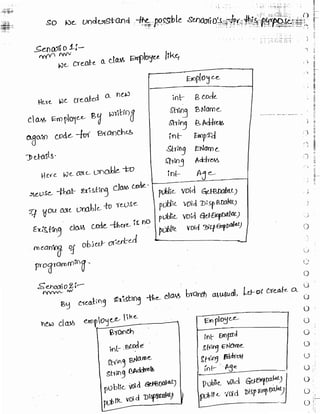 So we understand the possible Scenario's for this purpose:
Scenario 1:-
We Create a class Employee like,
Here we created a new
class Employee By writing
again code for Branches
Details.
Here we are unable to
reuse that Existing class code.
If you are unable to reuse
Existing class code there is no
meaning of object oriented
programming.
Employee
int B code
String BName
String B.Address
int EmpId
String EName
String Address
int Age
public void GetBData()
public void DispBData()
public void GetEmpData()
public void DispEmpData()
Scenario 2:-
By creating Existing the class branch as usual. Let us Create a
new class employee like
Branch
int Bcode
String BName
String BAddress
public void GetBData()
public void DispBData()
Employee
int EmpId
String EName
String Address
int Age
Public void GetEmpData()
public void DispEmpData()